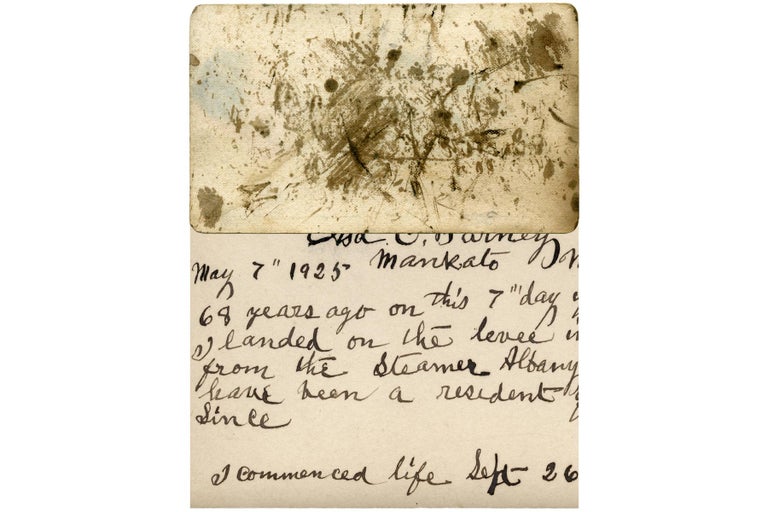 Asa. O. Barney
May 7" 1925 Mankato
68 years ago on this 7" day
I landed on the levee
from the Steamer Albany
have been a resident
Since
I commenced life Sept 26